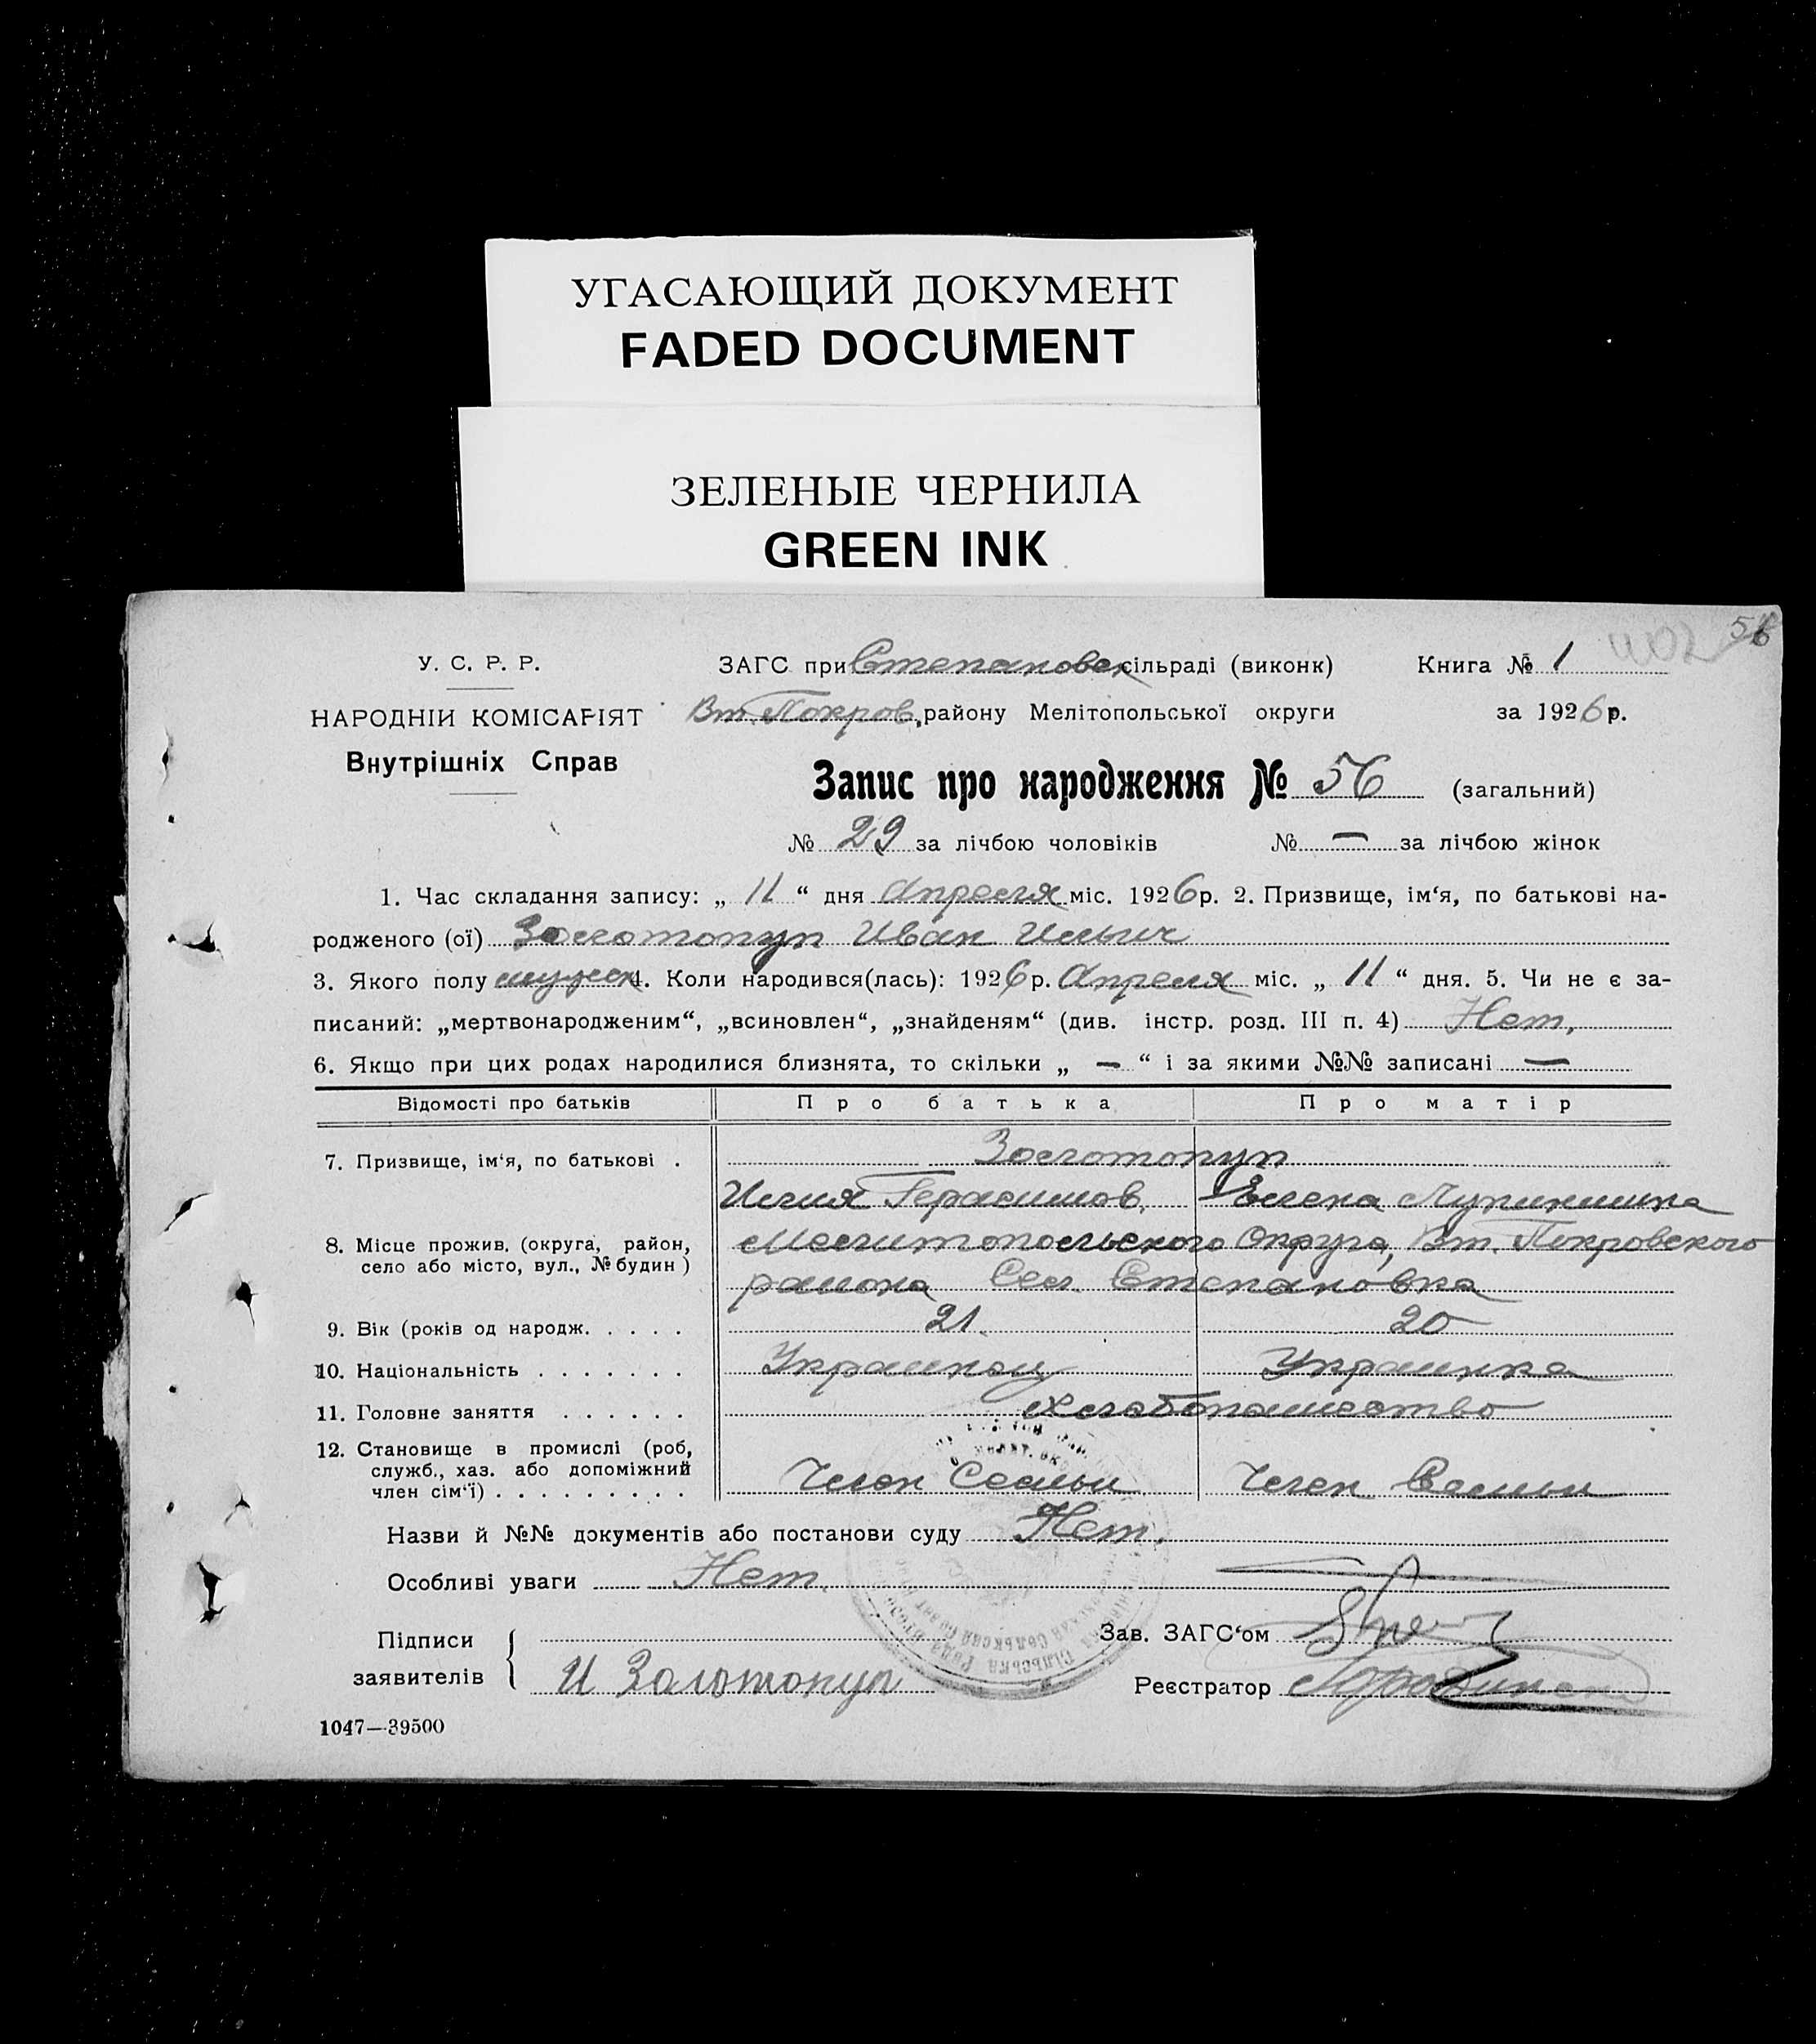 УГАСАЮЩИЙ ДОКУМЕНТ
FADED DOCUMENT
ЗЕЛЕНЫЕ ЧЕРНИЛА
GREEN INK
56
У. С. Р. Р.
ЗАГС при Степановск сільраді (виконк)
Книга № 1
НАРОДНІЙ КОМІСАРІЯТ
Вт. Покров. району Мелітопольської округи
за 1926 р.
Внутрішніх Справ
Запис про народження № 56 (загальний)
№ 29 за лічбою чоловіків № — за лічбою жінок
1. Час складання запису: „ 11 “ дня Апреля міс. 1926 р. 2. Призвище, ім‘я, по батькові на-
родженого (ої) Золотопуп Иван Ильич
3. Якого полу мужск 4. Коли народився(лась): 1926 р. Апреля міс. „ 11 “ дня. 5. Чи не є за-
писаний: „мертвонародженим“, „всиновлен“, „знайденям“ (див. інстр. розд. III п. 4) Нет.
6. Якщо при цих родах народилися близнята, то скільки „ — “ і за якими №№ записані —
Відомості про батьків Про батька Про матір
7. Призвище, ім‘я, по батькові . Золотопуп
Илия Герасимов. Елена
8. Місце прожив. (округа, район, село або місто, вул., № будин) Мелитопольского Округа, Вт. Покровского
района Сел. Степановка
9. Вік (років од народж. . . . . 21. 20
10. Національність . . . . . . . Украинец Украинка
11. Головне заняття . . . . . . Хлебопашество
12. Становище в промислі (роб,
служб., хаз. або допоміжний
член сім‘ї) . . . . . . . . . Член Семьи Член Семьи
Назви й №№ документів або постанови суду Нет.
Особливі уваги Нет.
Підписи
заявителів
И Золотопуп
Зав. ЗАГС‘ом
Реєстратор
1047—39500